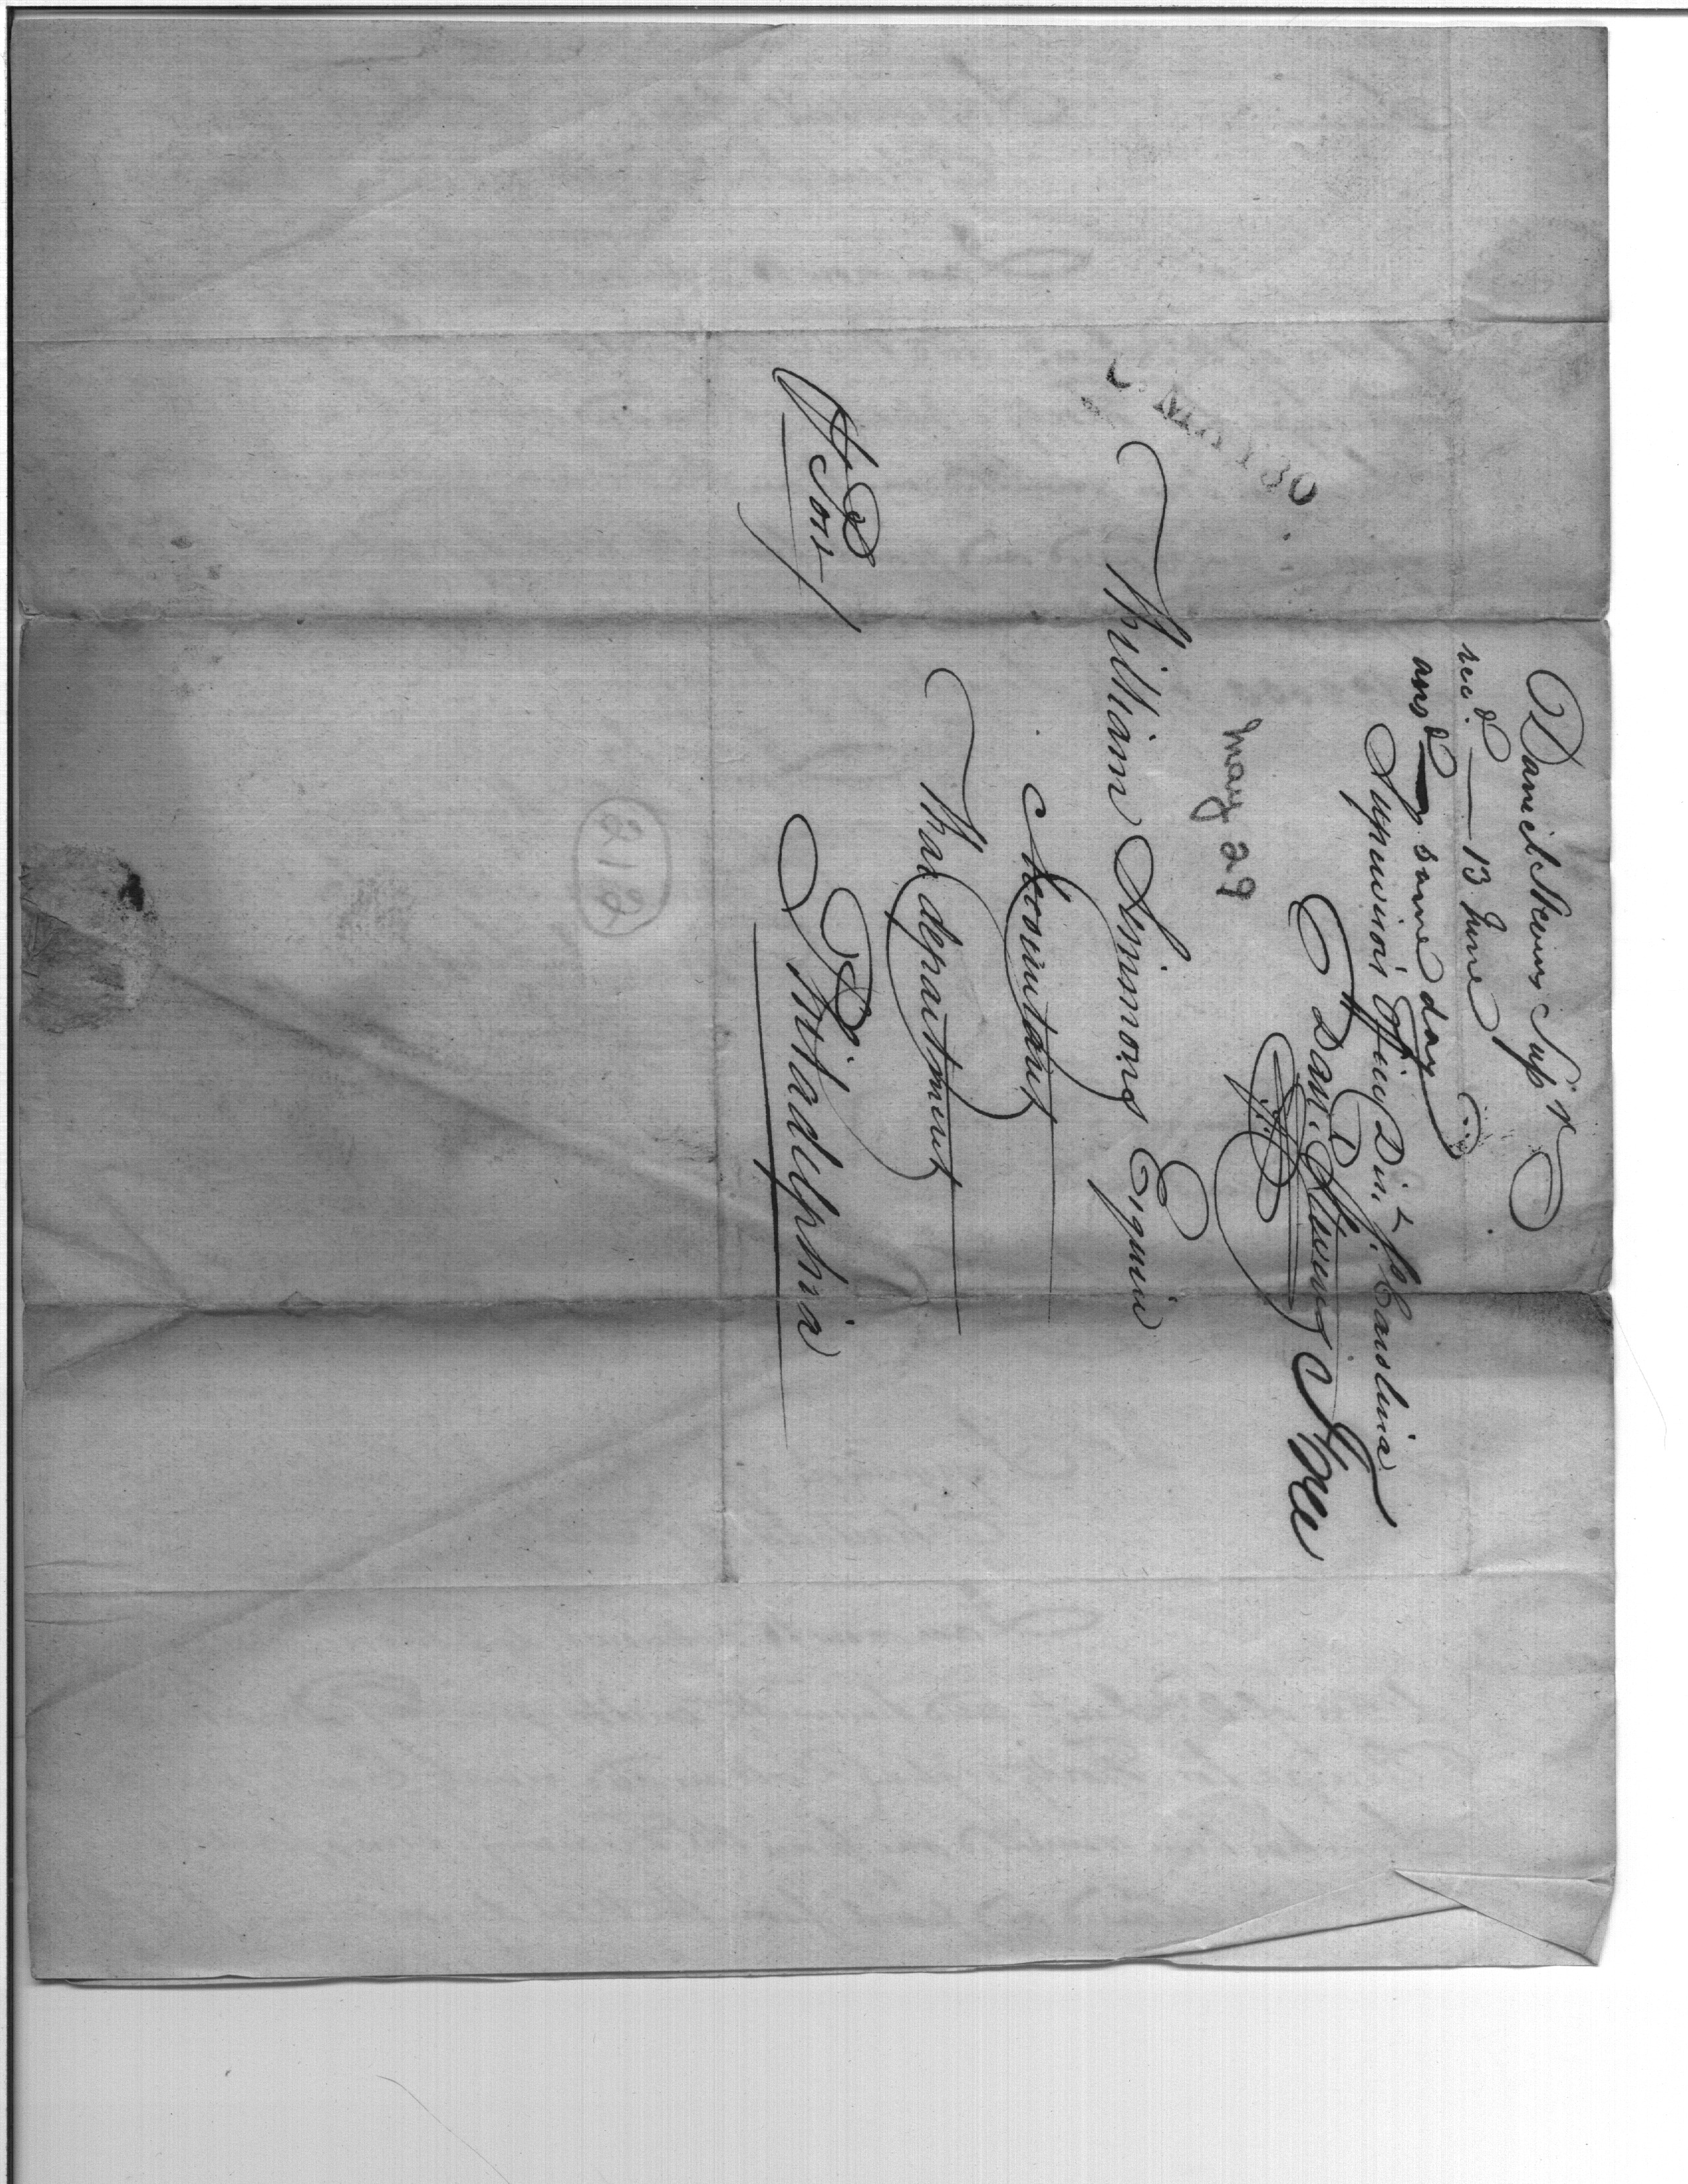 Daniel Stevens Sup.r
recd. — 13 June
ansd — same day
Supervisors Office Dist. So. Carolina
Danl. Stevens Free
May 29
MAY 30
William Simmons Esquire
Accountant
War department
Philadelphia